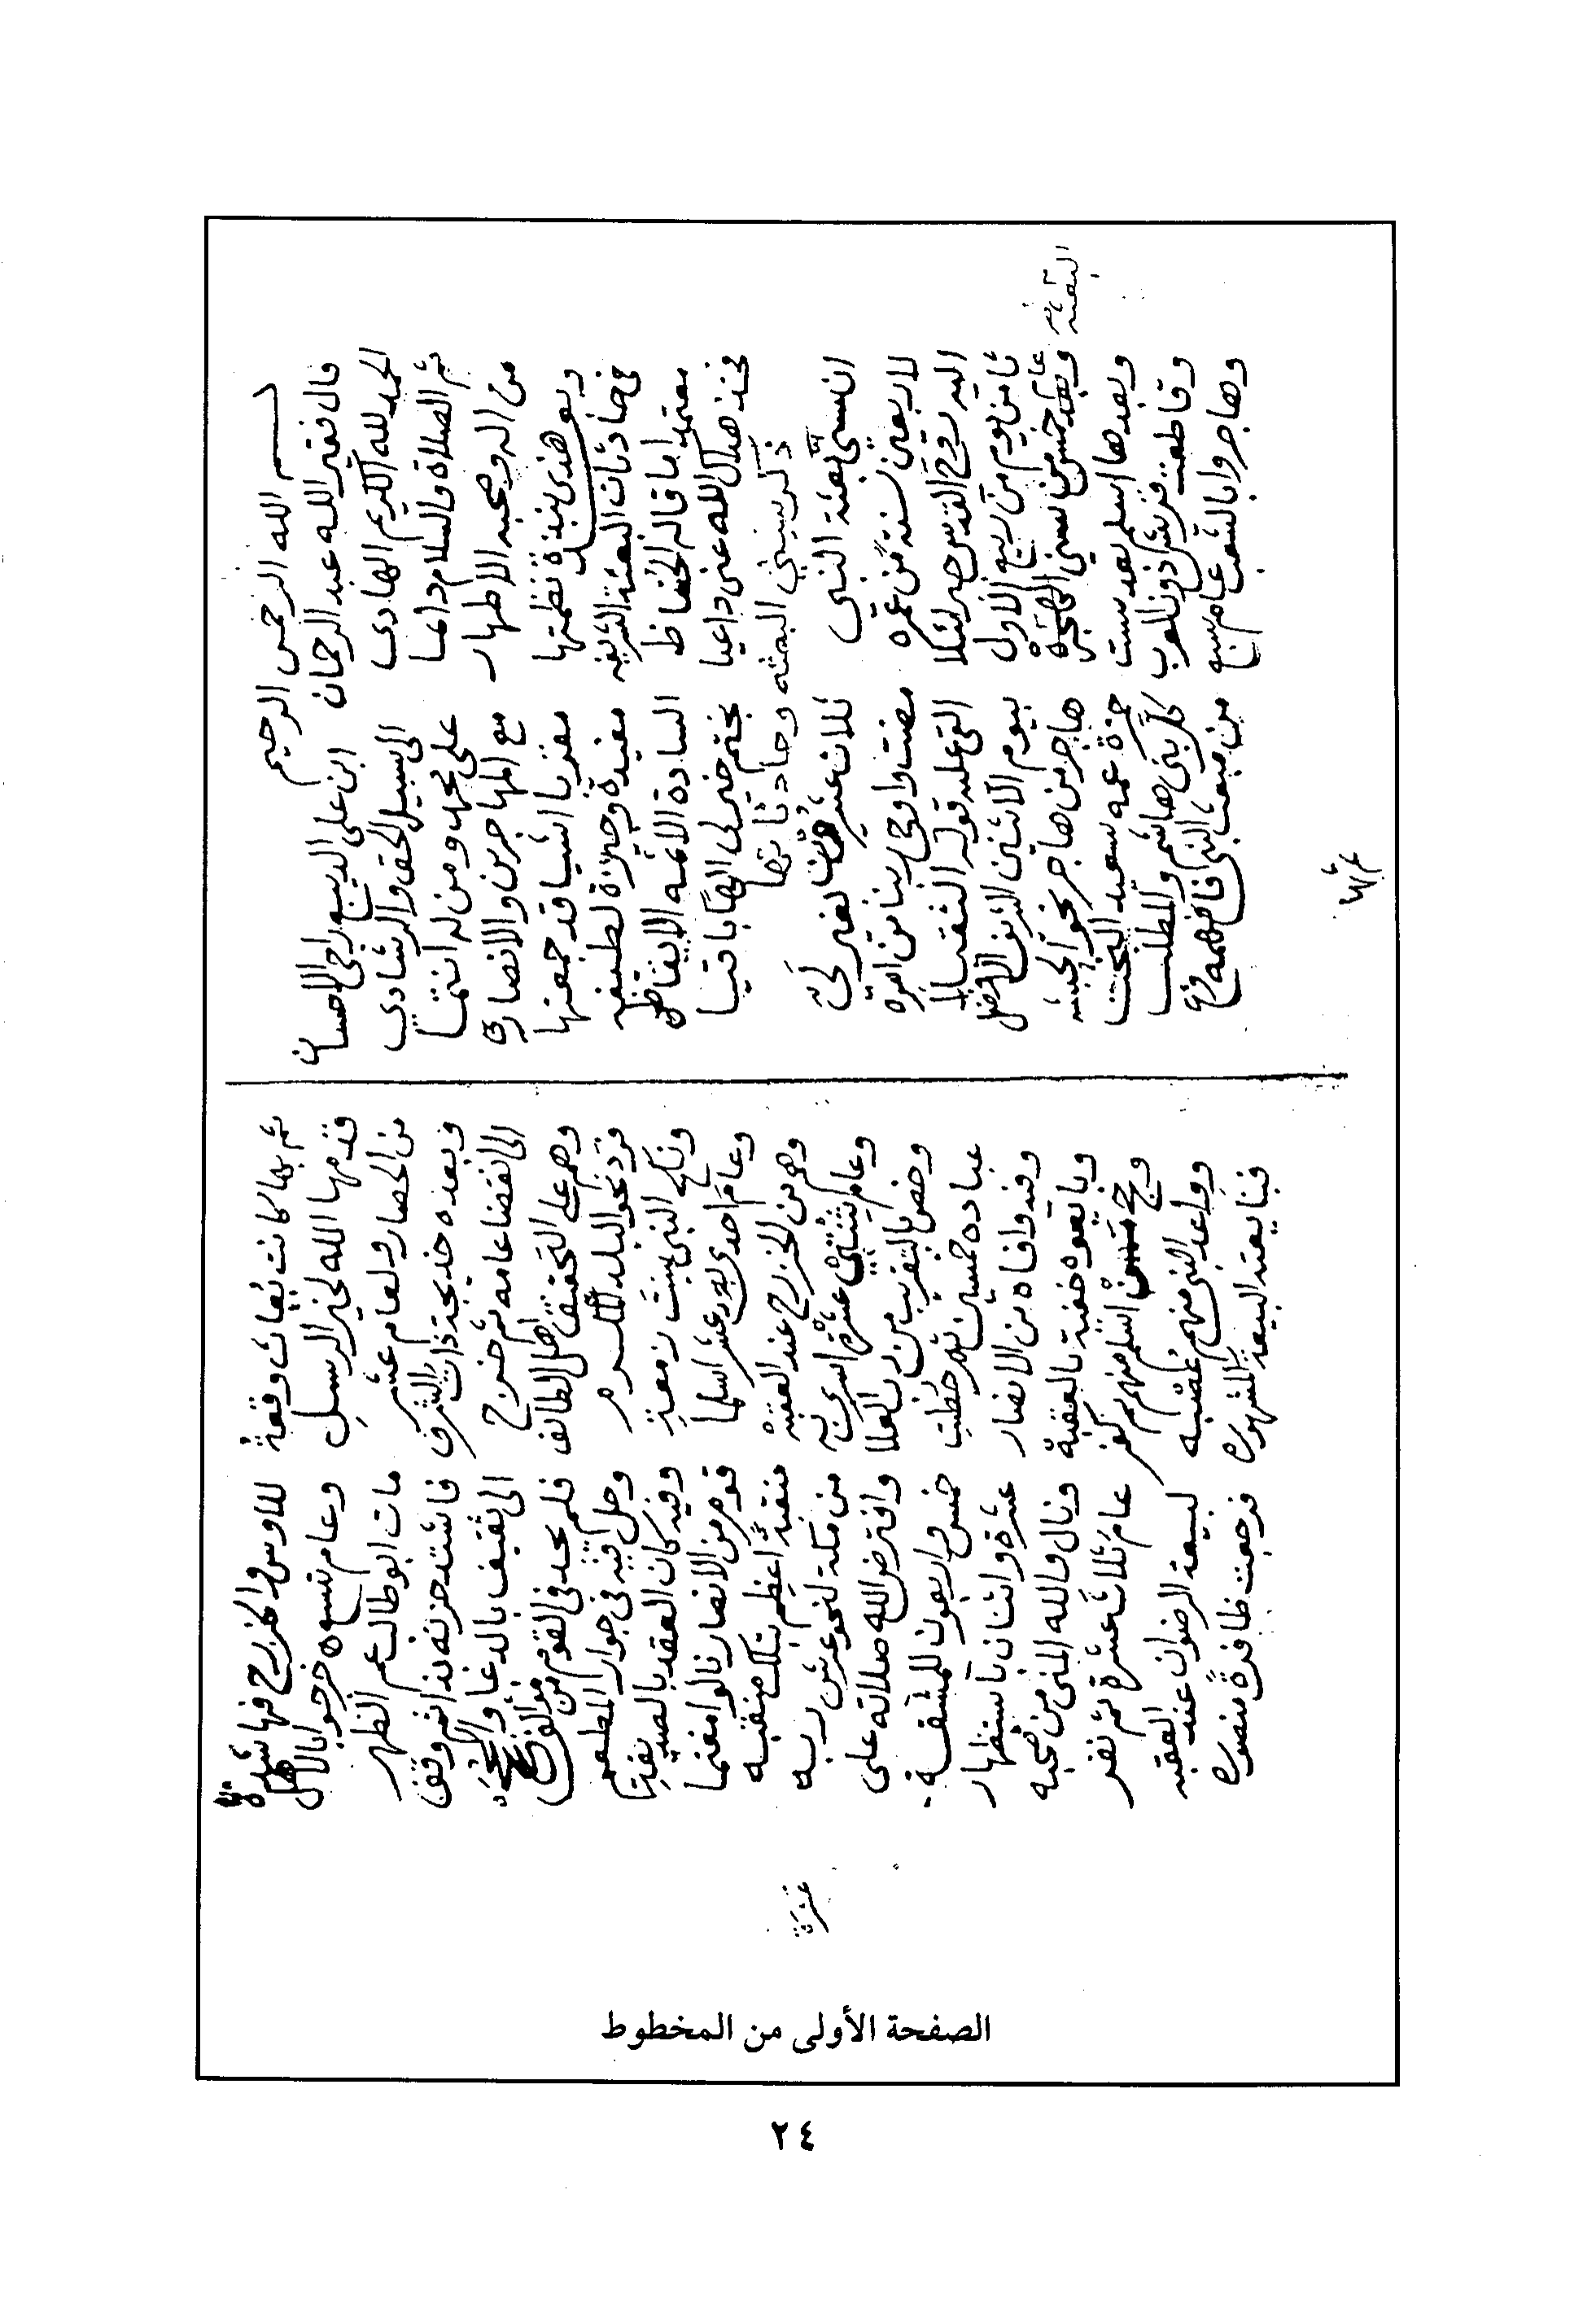 بسم الله الرحمن الرحيم
قال فقير الله عبد الرحمان ابن علي الديبع راجي الاحسان
الحمد لله الكريم الهادي الى سبيل الحق والرشادي
ثم الصلاة والسلام دائما على محمد ومن له انتما
من اله وصحبه الاطهار مع المهاجرين والانصار
وبعد هذي نبذة نظمتها مقربا اشيا قد جمعتها
في حادثات البعثة الشريفه مفيدة وجيزة لطيفه
معتمدا ما قاله الحفاظ السادة الائمه الايقاظ
فخذ هداك الله عني داعيا بختم خير لي الها باقيا
ذكر سني البعثه وحادثاتها
ان سني بعثة النبي ثلاث عشر لغير لي
لاربعين سنة من عمره مضت واوحى ربنا من امره
اليه روح القدس جبرئلا القى عليه قوله الثقيلا
ثامن يوم من ربيع الاول بيوم الاثنين الافضل
وبعد خمس من سني الهجره هاجر من هاجر نحو الحبشه
عام
البعثه
وبعدها اسلم بعد ست حمزة عمه سعيد البخت
وقاطعت قريش دون العرب كل بني هاشم والمطلب
وهاجروا بالشعب عام سبع من مبعث النبي فافهمه وع
ثم بها كانت بعاث وقعة للاوس والخزرج فيها شدة
قدمها الله لخير الرسل وعام تسعه خرجوا بالاهل
من الحصار ولعام عشر مات ابو طالب عم الطهر
وبعده خديجة ذات الشرف فاشتد حزنه
الى انقضا عامه ثم خرج الى ثقيف بالدعا
وهم على التحقيق اهل الطائف فلم يجد في القوم من
فرد نحو البلد المكرم وحل فيه في جوار المطعم
ونكح النبي بنت زمعة وفيه كان العقد بالصديقة
وعام احدى بعد عشر اسلما قوم من الانصار نالوا مغنما
وهم من الخزرج عند العقبه منقبة اعظم بتلك منقبه
وعام ثنتي عشرة اسري به من مكة لنحو عرش ربه
وخص بالتقريب من رب العلا وافترض الله صلاته على
عباده خمسين ثم حطت خمس واربعون للمشقه
وفيه وافاه من الانصار عشرة واثنان باستظهار
وبايعوه خفية بالعقبة ونال والله المنى من صحبه
وحج اسلم منهم كفر عام ثلاث عشرة ثم نفر
وواعد النبي منهم عصبه لبيعة الرضوان عند العقبه
فبايعته البيعة المشهوره فرجعت ظافرة منصوره
الصفحة الأولى من المخطوط
٢٤